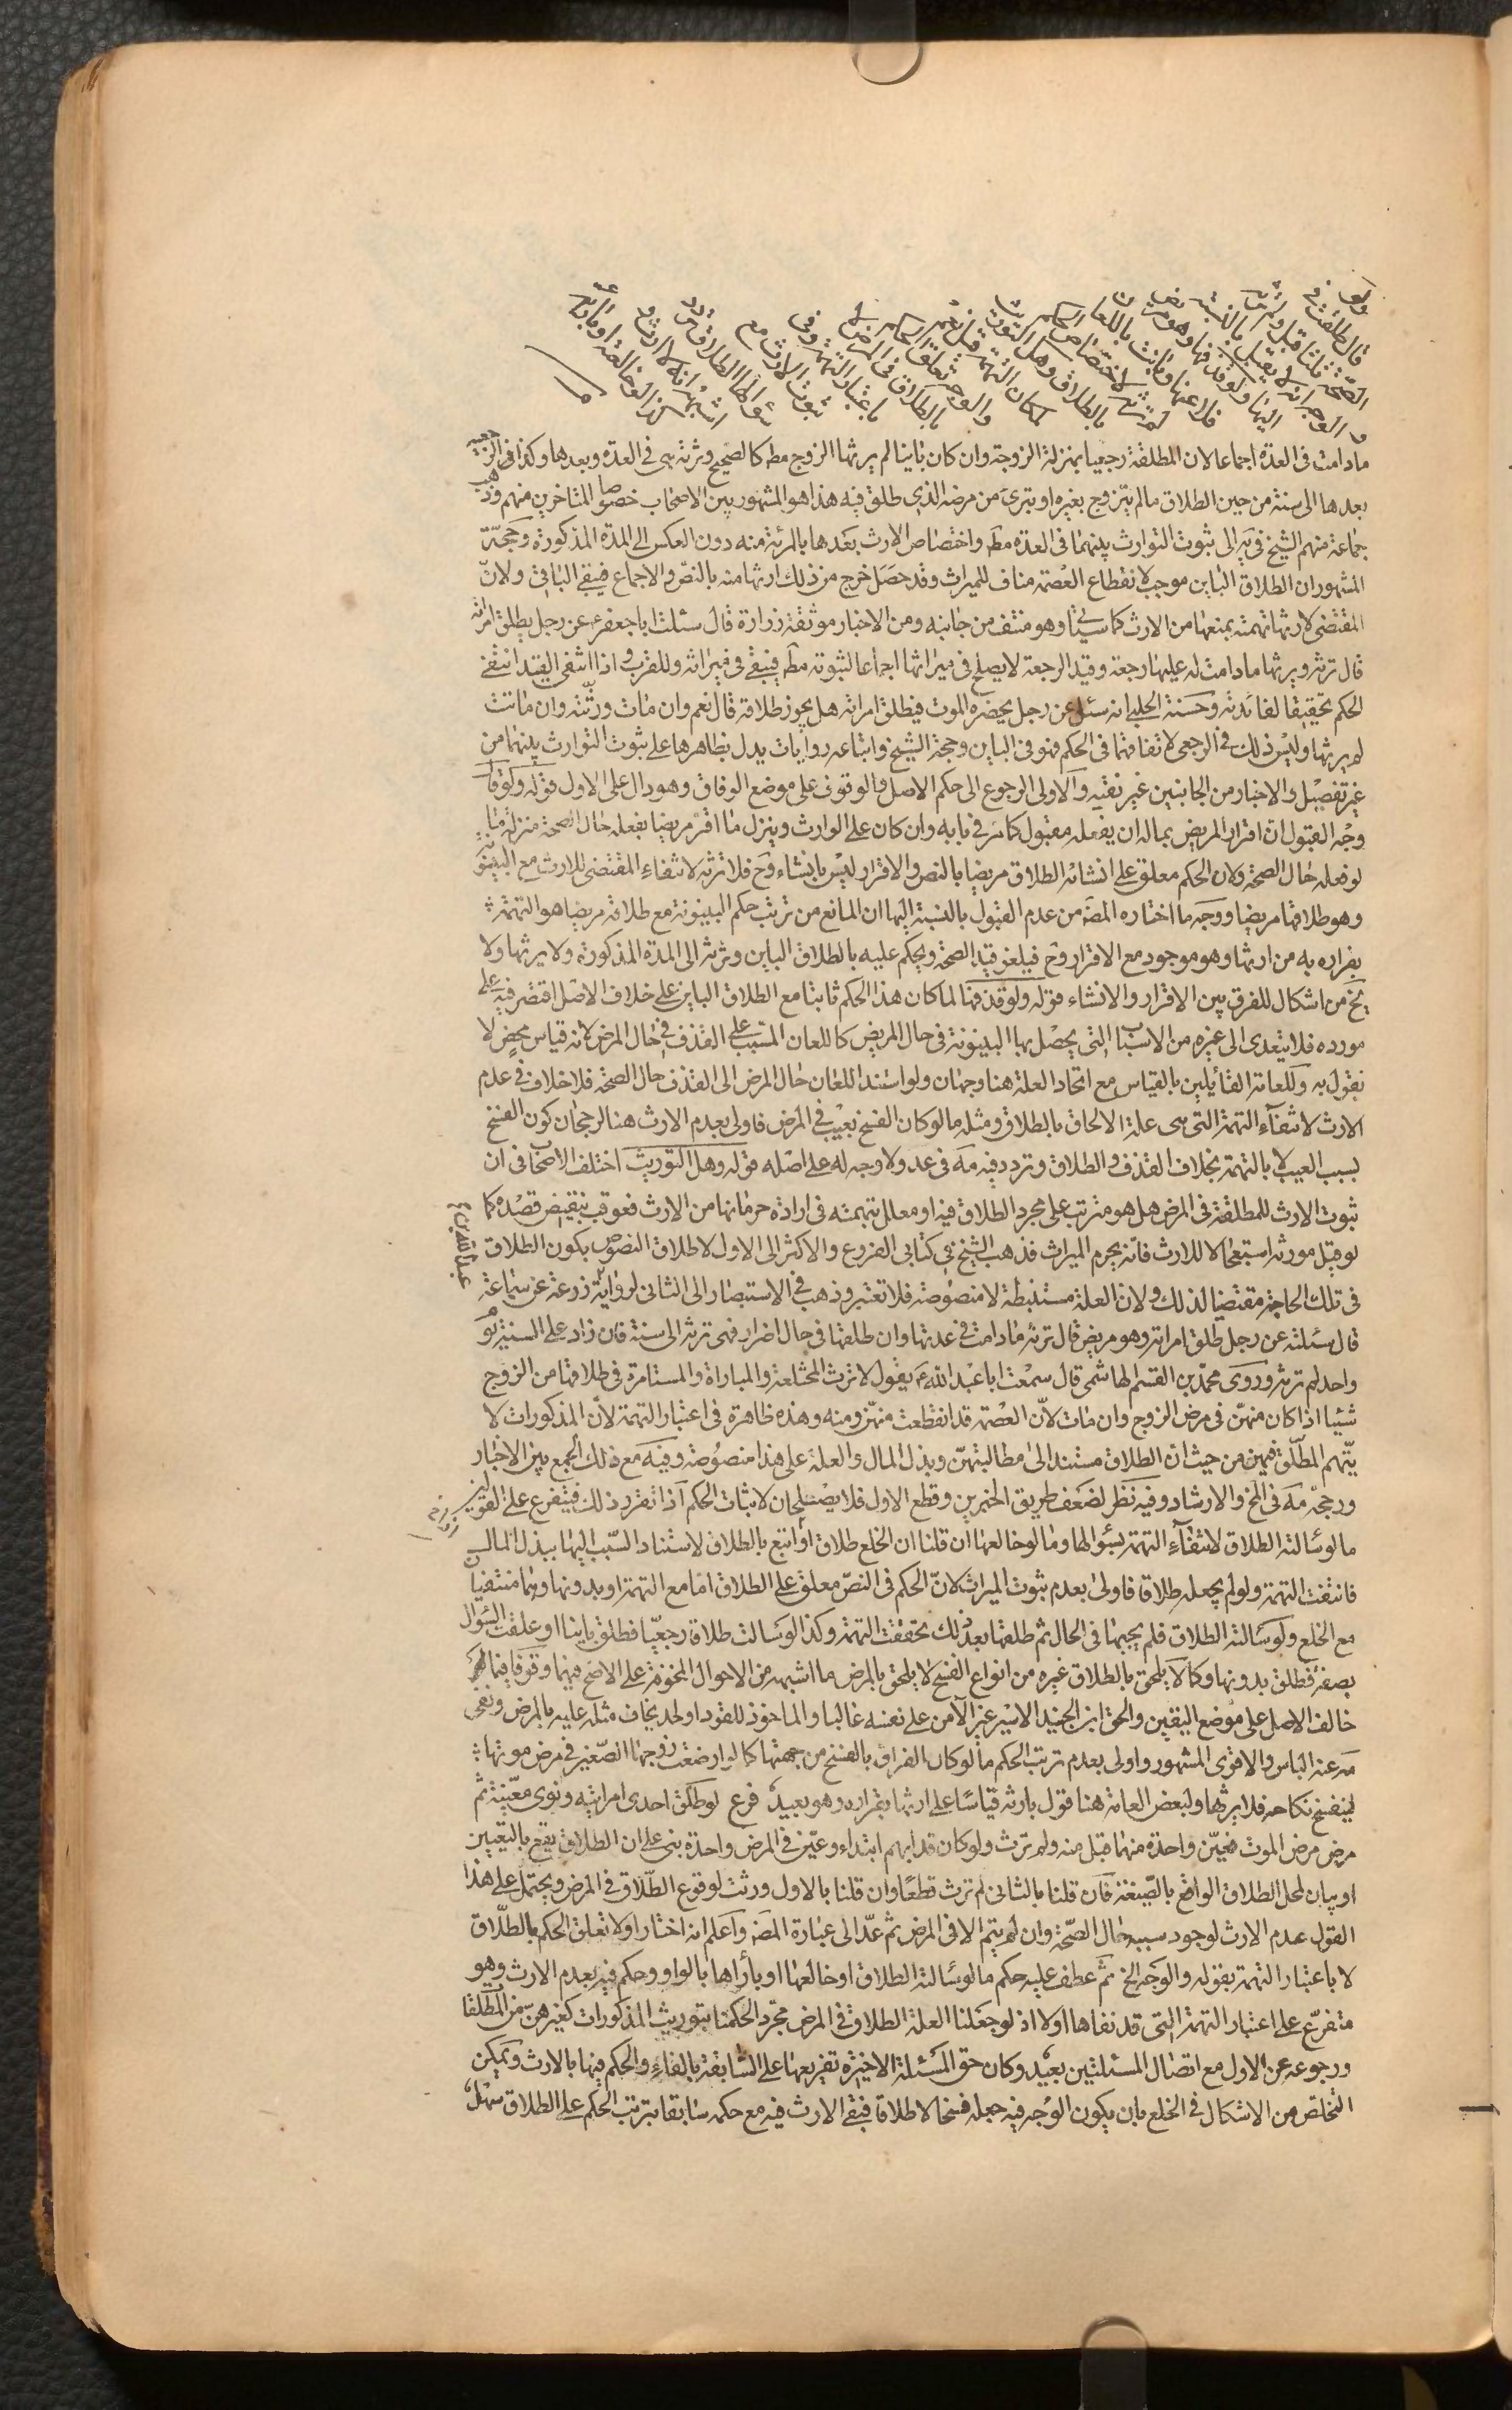 ولو
قال طلقت في
الصحة ثلثا قبل ولم ترثه
والوجه انه لا يقبل بالنسبة
اليها ولو قذفها وهو مريض
فلاعنها وبانت باللعان
لم ترثه لاختصاص الحكم
بالطلاق وهل التوريث
لمكان التهمة قيل نعم
والوجه تعلق الحكم
بالطلاق في المرض لا
باعتبار التهمة وفي
ثبوت الارث مع
سؤالها الطلاق تردد
اشبهه انه لا ارث و
كذا لو خالعته او بارأته
مادامت في العدة اجماعا لان المطلقة رجعيا بمنزلة الزوجة وان كان باينا لم يرثها الزوج مطـ كالصحيح وترثه هي في العدة وبعدها وكذا في الرجعية
بعدها الى سنة من حين الطلاق مالم يتزوج بغيره او يبرئ من مرضه الذي طلق فيه هذا هو المشهور بين الاصحاب خصوصا المتاخرين منهم وذهب
جماعة منهم الشيخ في يه الى ثبوت التوارث بينهما في العدة مطـ واختصاص الارث بعدها بالمرئة منه دون العكس الى المدة المذكورة وحجة
المشهور ان الطلاق الباين موجب لانقطاع العصمة مناف للميراث وقد حصل خرج من ذلك ارثها منه بالنص والاجماع فيبقى الباقي ولان
المقتضي لارثها تهمته بمنعها من الارث كما سياتي وهو منتف من جانبه ومن الاخبار موثقة زرارة قال سئلت ابا جعفر ع عن رجل يطلق امراته
قال ترثه ويرثها مادامت له عليها رجعة وقيد الرجعة لا يصلح في ميراثها اجماعا لثبوته مطـ فيبقى في ميراثه وللقرب واذا انتفى القيد انتفى
الحكم تحقيقا لفائدته وحسنة الحلبي انه سئل عن رجل يحضره الموت فيطلق امراته هل يجوز طلاقه قال نعم وان مات ورثته وان ماتت
لم يرثها وليس ذلك في الرجعي لاتفاقهما في الحكم فهو في الباين وحجة الشيخ واتباعه روايات يدل بظاهرها على ثبوت التوارث بينهما من
غير تفصيل والاخبار من الجانبين غير نقية والاولى الرجوع الى حكم الاصل والوقوف على موضع الوفاق وهو دال على الاول قوله ولو قال
وجه القبول ان اقرار المريض بماله ان يفعله مقبول كما مر في بابه وان كان على الوارث وينزل ما اقر مريضا بفعله حال الصحة منزلة ما
لو فعله حال الصحة ولان الحكم معلق على انشائه الطلاق مريضا بالنص والاقرار ليس بانشاء وح فلا ترثه لانتفاء المقتضي للارث مع البينونة
وهو طلاقها مريضا ووجه ما اختاره المصـ من عدم القبول بالنسبة اليها ان المانع من ترتب حكم البينونة مع طلاقه مريضا هو التهمة
بفراره به من ارثها وهو موجود مع الاقرار وح فيلغو قيد الصحة ويحكم عليه بالطلاق الباين وترثه الى المدة المذكورة ولا يرثها ولا
يخ من اشكال للفرق بين الاقرار والانشاء قوله ولو قذفها لما كان هذا الحكم ثابتا مع الطلاق الباين على خلاف الاصل اقتصر فيه على
مورده فلا يتعدى الى غيره من الاسباب التي يحصل بها البينونة في حال المريض كاللعان المسبب على القذف في حال المرض لانه قياس محض لا
نقول به وللعامة القائلين بالقياس مع اتحاد العلة هنا وجهان ولو استند اللعان حال المرض الى القذف حال الصحة فلا خلاف في عدم
الارث لانتفاء التهمة التي هي علة الالحاق بالطلاق ومثله ما لو كان الفسخ بعيب في المرض فاولى بعدم الارث هنا لرجحان كون الفسخ
بسبب العيب لا بالتهمة بخلاف القذف والطلاق وتردد فيه مه في عد ولا وجه له على اصله قوله وهل التوريث اختلف الاصحاب في ان
ثبوت الارث للمطلقة في المرض هل هو مترتب على مجرد الطلاق فيه او معلل بتهمته في ارادة حرمانها من الارث فعوقب بنقيض قصده كما
لو قتل مورثه استعجالا للارث فانه يحرم الميراث فذهب الشيخ في كتابي الفروع والاكثر الى الاول لاطلاق النصوص بكون الطلاق
في تلك الحاجة مقتضيا لذلك ولان العلة مستنبطة لا منصوصة فلا تعتبر وذهب في الاستبصار الى الثاني لرواية زرعة عن سماعة
قال سئلته عن رجل طلق امراته وهو مريض قال ترثه مادامت في عدتها وان طلقها في حال اضرار فهي ترثه الى سنة فان زاد على السنة يوم
واحد لم ترثه وروى محمد بن القسم الهاشمي قال سمعت ابا عبد الله ع يقول لا ترث المختلعة والمباراة والمستامرة في طلاقها من الزوج
شيئا اذا كان منهن في مرض الزوج وان مات لان العصمة قد انقطعت منهن ومنه وهذه ظاهرة في اعتبار التهمة لان المذكورات لا
يتهم المطلق فيهن من حيث ان الطلاق مستند الى مطالبتهن وبذل المال والعلة على هذا منصوصة وفيه مع ذلك الجمع بين الاخبار
ورجحه مه في المخ والارشاد وفيه نظر لضعف طريق الخبرين وقطع الاول فلا يصلحان لاثبات الحكم اذا تقرر ذلك فيتفرع على القولين
ما لو سالته الطلاق لانتفاء التهمة بسؤالها وما لو خالعها ان قلنا ان الخلع طلاق او اتبع بالطلاق لاستناد السبب اليها ببذل المال
فانتفت التهمة ولو لم يجعله طلاقا فاولى بعدم ثبوت الميراث لان الحكم في النص معلق على الطلاق اما مع التهمة او بدونها وهما منتفيان
مع الخلع ولو سالته الطلاق فلم يجبها في الحال ثم طلقها بعد ذلك تحققت التهمة وكذا لو سالت طلاقا رجعيا فطلق باينا او علقت السؤال
بصفة فطلق بدونها وكما لا يلحق بالطلاق غيره من انواع الفسخ لا يلحق بالمرض ما اشبهه من الاحوال المخوفة على الاصح فيهما وقوفا فيما
خالف الاصل على موضع اليقين والحق ابن الجنيد الاسير غير الآمن على نفسه غالبا والماخوذ للقود او لحد يخاف مثله عليه بالمرض ونفى
مه عنه الباس والاقوى المشهور واولى بعدم ترتب الحكم ما لو كان الفراق بالفسخ من جهتها كما لو ارضعت زوجها الصغير في مرض موتها
لينفسخ نكاحه فلا يرثها ولبعض العامة هنا قول بارثه قياسا على ارثها بفراره وهو بعيد فرع لو طلق احدى امراتيه ونوى معينة ثم
مرض مرض الموت فعين واحدة منهما قبل منه ولم ترث ولو كان قد ابهم ابتداء وعين في المرض واحدة بنى على ان الطلاق يقع بالتعيين
او بيان لمحل الطلاق الواقع بالصيغة فان قلنا بالثاني لم ترث قطعا وان قلنا بالاول ورثت لوقوع الطلاق في المرض ويحتمل على هذا
القول عدم الارث لوجود سببه حال الصحة وان لم يتم الا في المرض ثم عد الى عبارة المصـ واعلم انه اختار اولا تعلق الحكم بالطلاق
لا باعتبار التهمة بقوله والوجه الخ ثم عطف عليه حكم ما لو سالته الطلاق او خالعها او بارأها بالواو وحكم فيه بعدم الارث وهو
متفرع على اعتبار التهمة التي قد نفاها اولا اذ لو جعلنا العلة الطلاق في المرض مجرد الحكمنا بتوريث المذكورات كغيرهن من المطلقا
ورجوعه عن الاول مع اتصال المسئلتين بعيد وكان حق المسئلة الاخيرة تفريعها على السابقة بالفاء والحكم فيها بالارث ويمكن
التخلص من الاشكال في الخلع بان يكون الوجه فيه جعله فسخا لا طلاقا فينفى الارث فيه مع حكمه سابقا بترتب الحكم على الطلاق سهل